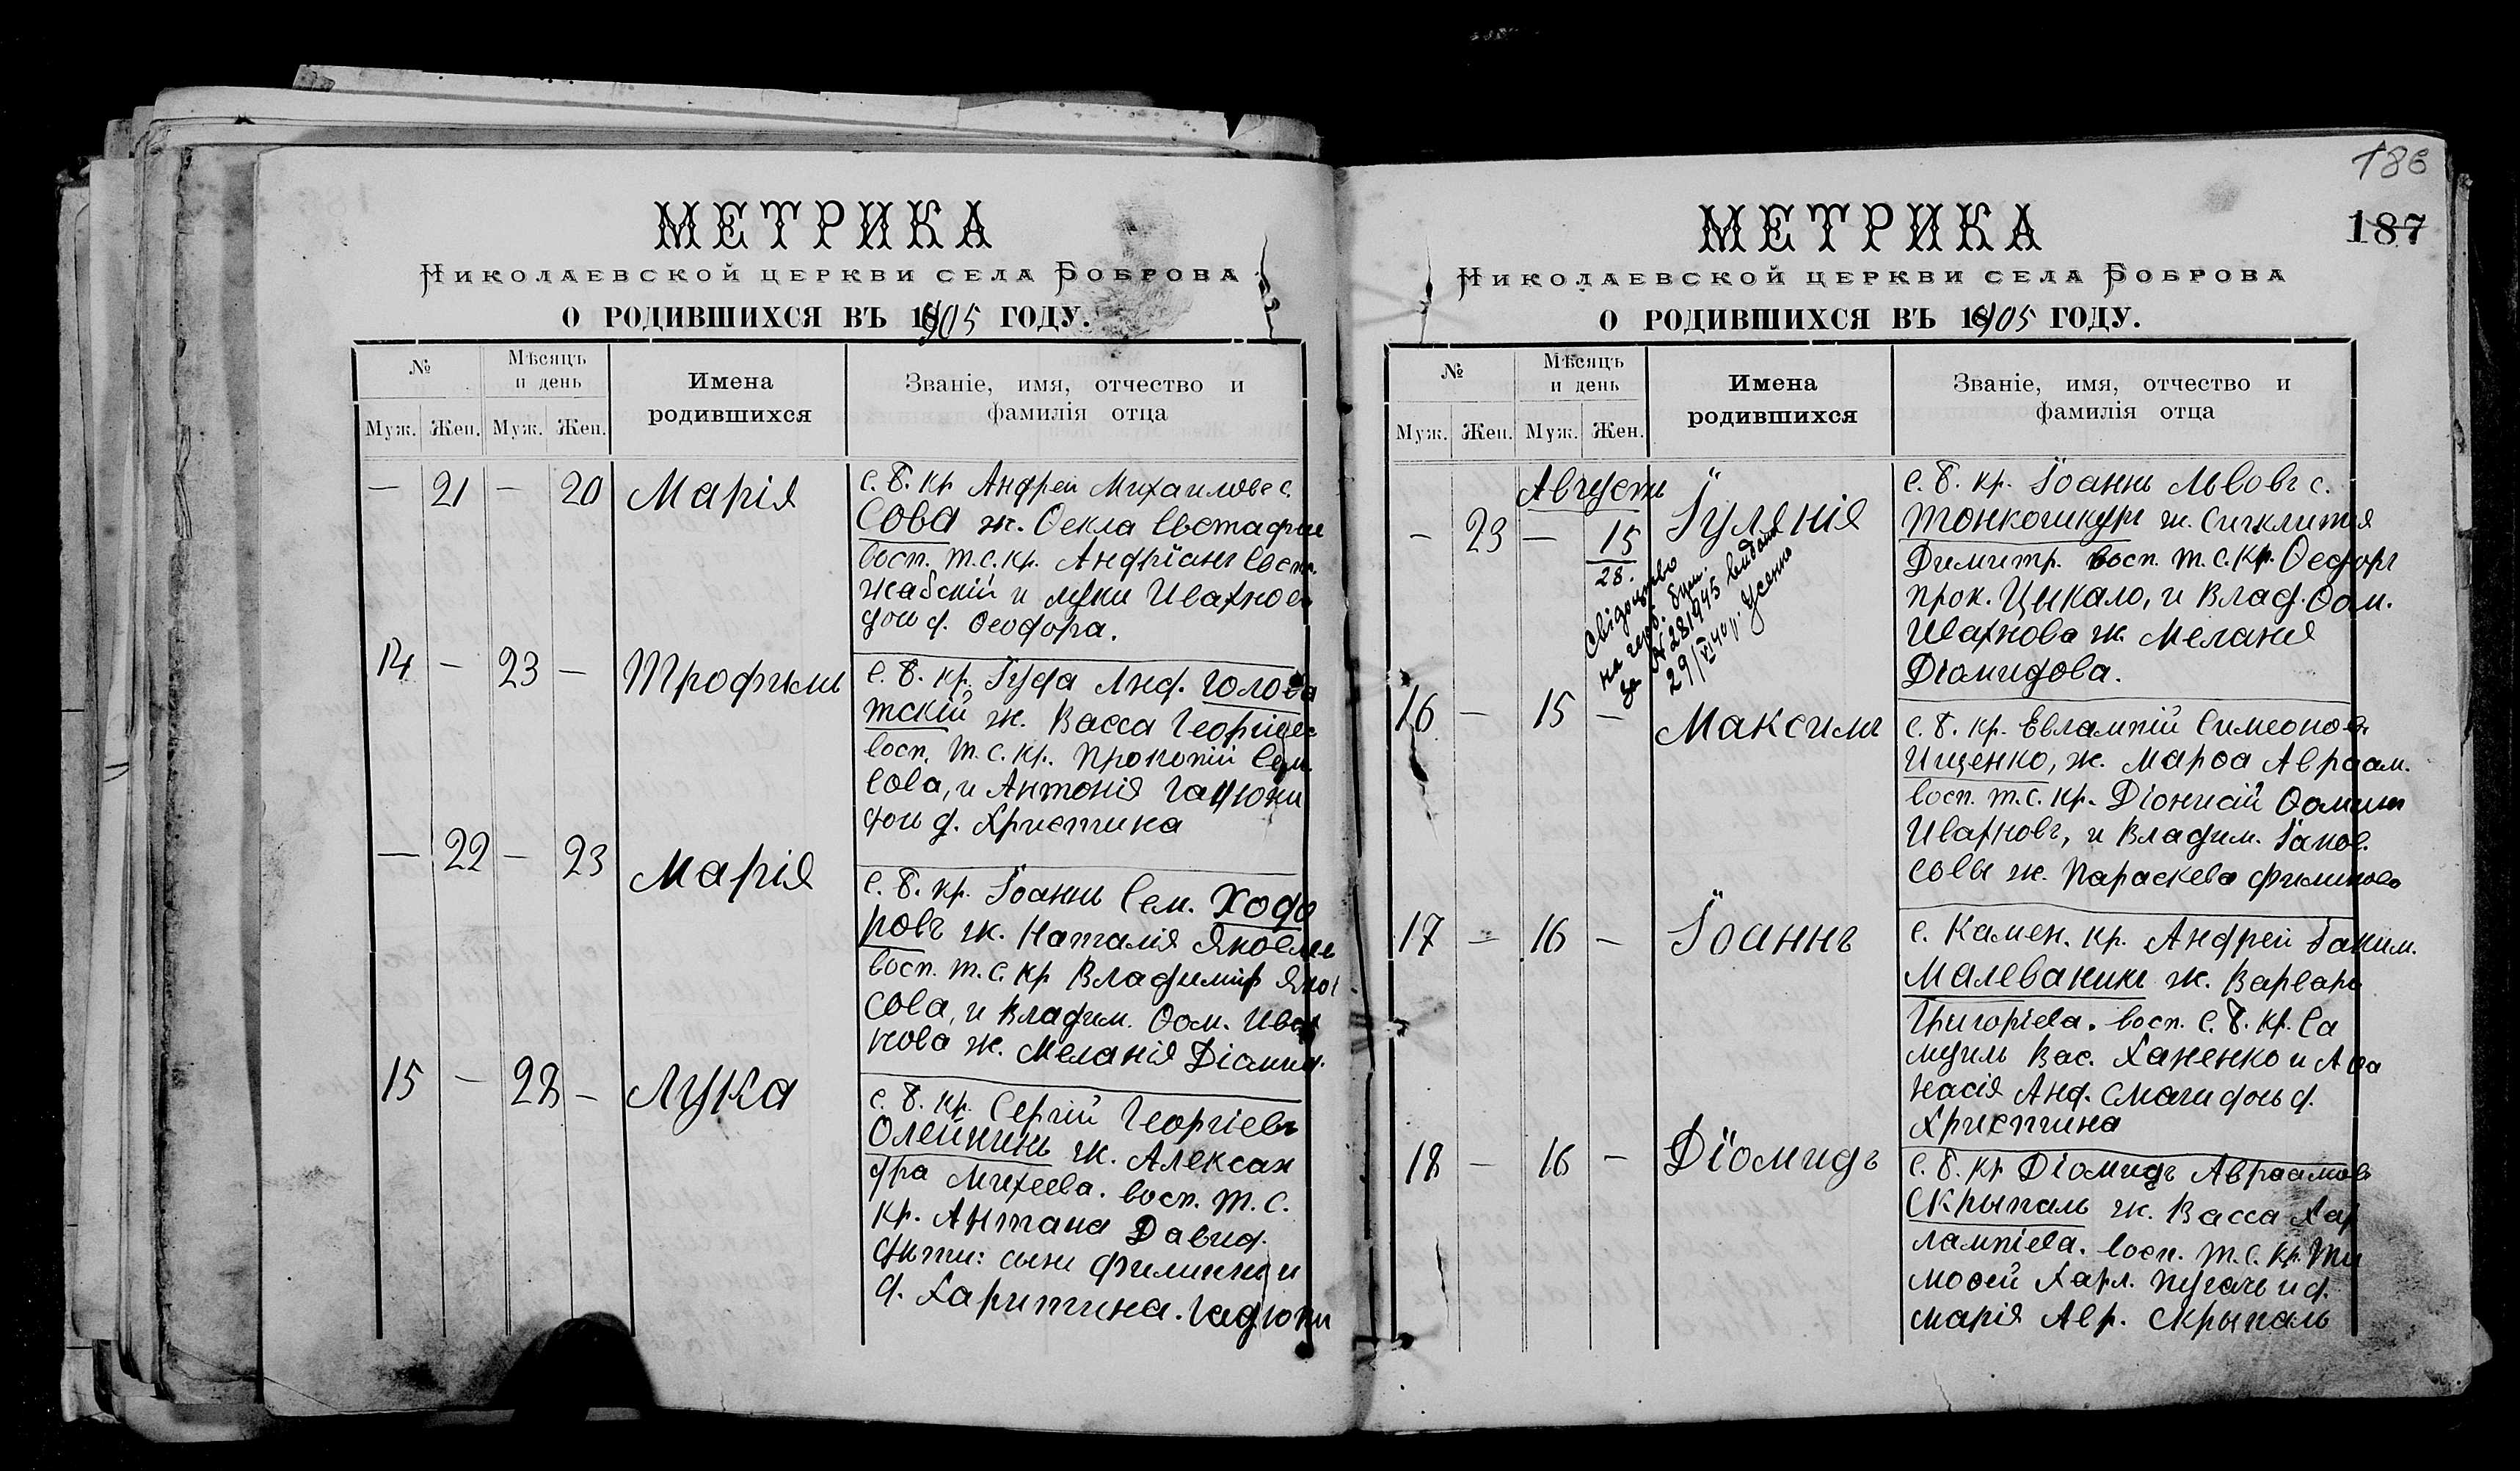 МЕТРИКА
Николаевской церкви села Боброва
О РОДИВШИХСЯ ВЪ 1905 ГОДУ.
№
Мѣсяцъ и день
Имена родившихся
Званіе, имя, отчество и фамилія отца
Муж. Жен. Муж. Жен.
— 21 — 20 Марія
с. Б. кр Андрей Михаиловъ с.
Сова ж. Ѳекла Евстафіе
восп. т. с. кр. Андріанъ Евст.
Жабскій и луки Ивахнов
дочь д. Ѳеодора.
14 — 23 — Трофимъ
с. Б. кр. Іуда Анд. Голова
тскій ж. Васса Георгіев
восп. т. с. кр. Прокопій Сем.
Сова, и Антонія Гадюки
дочь д. Христина
— 22 — 23 Марія
с. Б. кр. Іоаннъ Сем. Ходо
ровъ ж. Наталія Яковле
восп. т. с. кр Владимир Яков
Сова, и Владим. Ѳом. Ивах
нова ж. Меланія Діомид.
15 — 28 — Лука
с. Б. кр. Сергій Георгіевъ
Олейникъ ж. Алексан
дра Михеева. восп. т. с.
кр. Антона Давид.
дѣти: сынъ Филиппъ и
д. Харитина. Гадюки
186
187
МЕТРИКА
Николаевской церкви села Боброва
О РОДИВШИХСЯ ВЪ 1905 ГОДУ.
№
Мѣсяцъ и день
Имена родившихся
Званіе, имя, отчество и фамилія отца
Муж. Жен. Муж. Жен.
Августъ
— 23 — 15 Іулянія
28.
Свідоцтво
на черв.
за № 281945 видано
29/VI 40 р. Усенко
с. Б. кр. Іоаннъ Львовъ с.
Тонкошкуръ ж. Сигклитія
Димитр. восп. т. с. кр. Ѳедоръ
Прок. Цыкало, и Влад. Ѳом.
Ивахнова ж. Меланія
Діомидова.
16 — 15 — Максимъ
с. Б. кр. Евлампій Симеонов
Ищенко, ж. Марѳа Авраам.
восп. т. с. кр. Діонисій Ѳомин
Ивахновъ, и Владим. Іаков.
Совы ж. Параскева Филипова
17 — 16 — Іоаннъ
с. Камен. кр. Андрей Іаким.
Малеваникъ ж. Варвара
Григоріева. восп. с. Б. кр. Са
муиль Вас. Ханенко и Аѳа
насія Анд. Смаги дочь д.
Христина
18 — 16 — Діомидъ
с. Б. кр Діомидъ Авраамов
Скрыпаль ж. Васса Хар
лампіева. восп. т. с. кр. Ти
моѳей Харл. Пугачъ и д.
Марія Авр. Скрыпаль